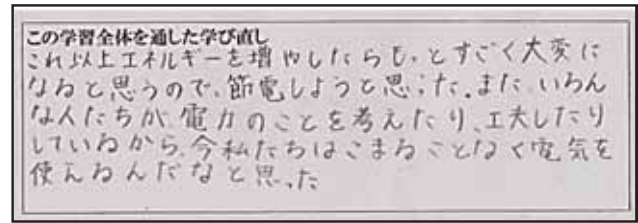 この学習全体を通した学び直し
これ以上エネルギーを増やしたらもっとすごく大変に
なると思うので、節電しようと思った。また、いろん
な人たちが、電力のことを考えたり、工夫したり
しているから、今私たちはこまることなく電気を
使えるんだなと思った